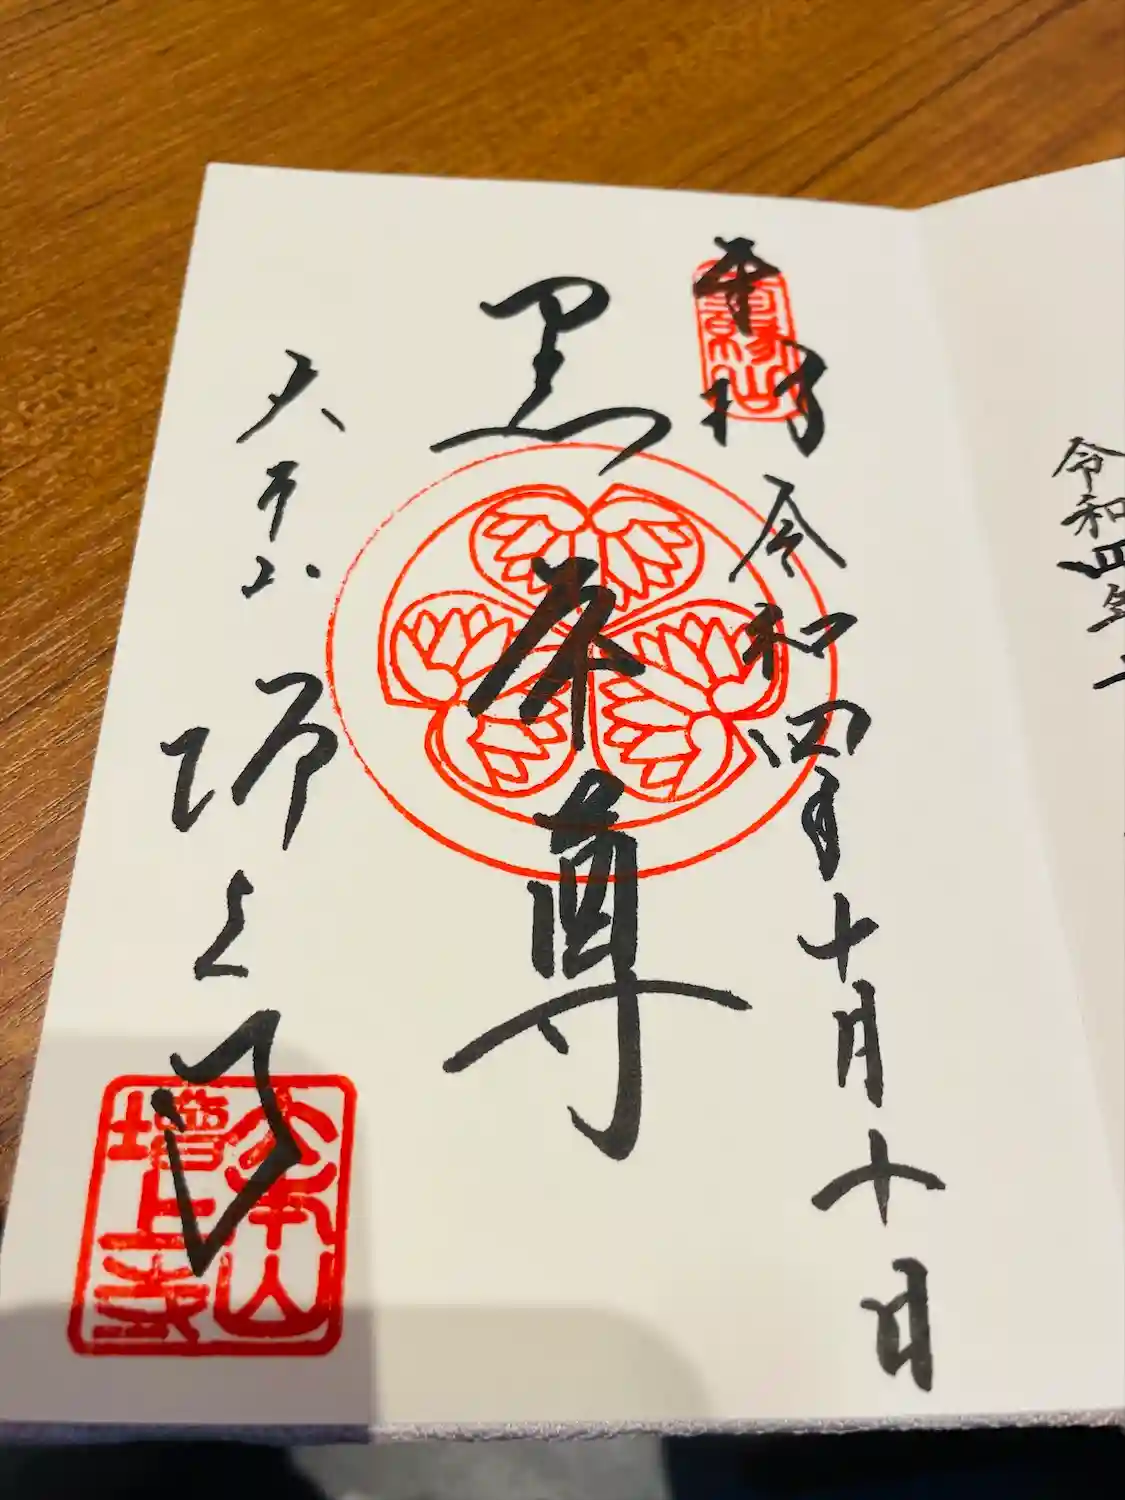 令和四年十
奉拝
令和四年十月十日
黒本尊
大本山
増上寺
大本山
増上寺